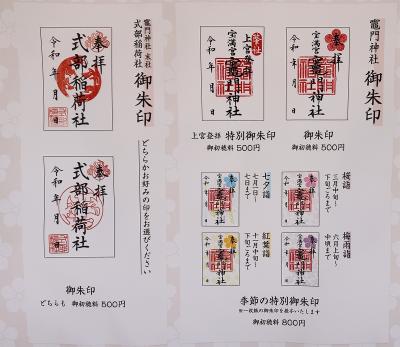 竈門神社
御朱印
奉拝
宝満宮
竈門神社
令和 年 月 日
御朱印
御初穂料 500円
登拝
上宮登拝
宝満宮
竈門神社
令和 年 月 日
上宮登拝 特別御朱印
御初穂料 500円
桜詣
三月中旬~
下旬ごろまで
梅雨詣
六月上旬~
中頃まで
七夕詣
七月一日~
七日まで
紅葉詣
十一月中旬~
下旬ごろまで
季節の特別御朱印
御初穂料 800円
竈門神社 末社
式部稲荷社
御朱印
奉拝
式部稲荷社
令和 年 月 日
奉拝
式部稲荷社
令和 年 月 日
どちらかお好みの印をお選びください
御朱印
どちらも 御初穂料 500円